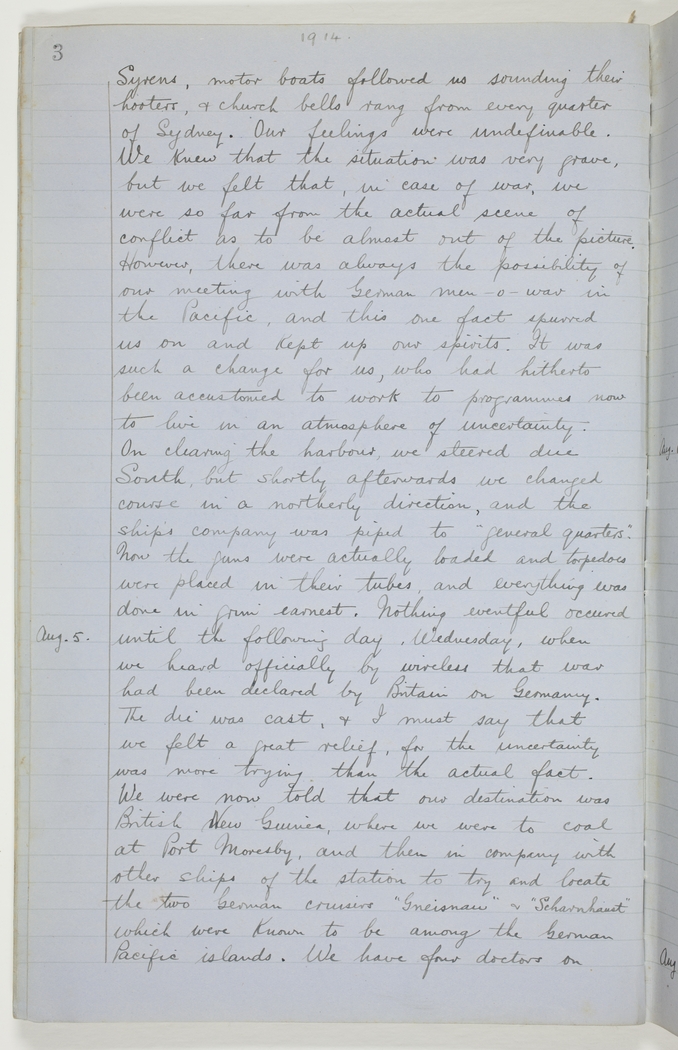 3
1914.
Syrens, motor boats followed us sounding their
hooters, & church bells rang from every quarter
of Sydney. Our feelings were undefinable.
We knew that the situation was very grave,
but we felt that, in case of war, we
were so far from the actual scene of
conflict as to be almost out of the picture.
However, there was always the possibility of
our meeting with German men-o-war in
the Pacific, and this one fact spurred
us on and kept up our spirits. It was
such a change for us, who had hitherto
been accustomed to work to programmes now
to live in an atmosphere of uncertainty.
On clearing the harbour, we steered due
South, but shortly afterwards we changed
course in a northerly direction, and the
ship's company was piped to "general quarters".
Now the guns were actually loaded and torpedoes
were placed in their tubes, and everything was
done in grim earnest. Nothing eventful occured
Aug. 5. until the following day, Wednesday, when
we heard officially by wireless that war
had been declared by Britain on Germany.
The die was cast, & I must say that
we felt a great relief, for the uncertainty
was more trying than the actual fact.
We were now told that our destination was
British New Guinea, where we were to coal
at Port Moresby, and then in company with
other ships of the station to try and locate
the two German cruisers "Gneisnau" & "Scharnhaust"
which were known to be among the German
Pacific islands. We have four doctors on
Aug.
Aug